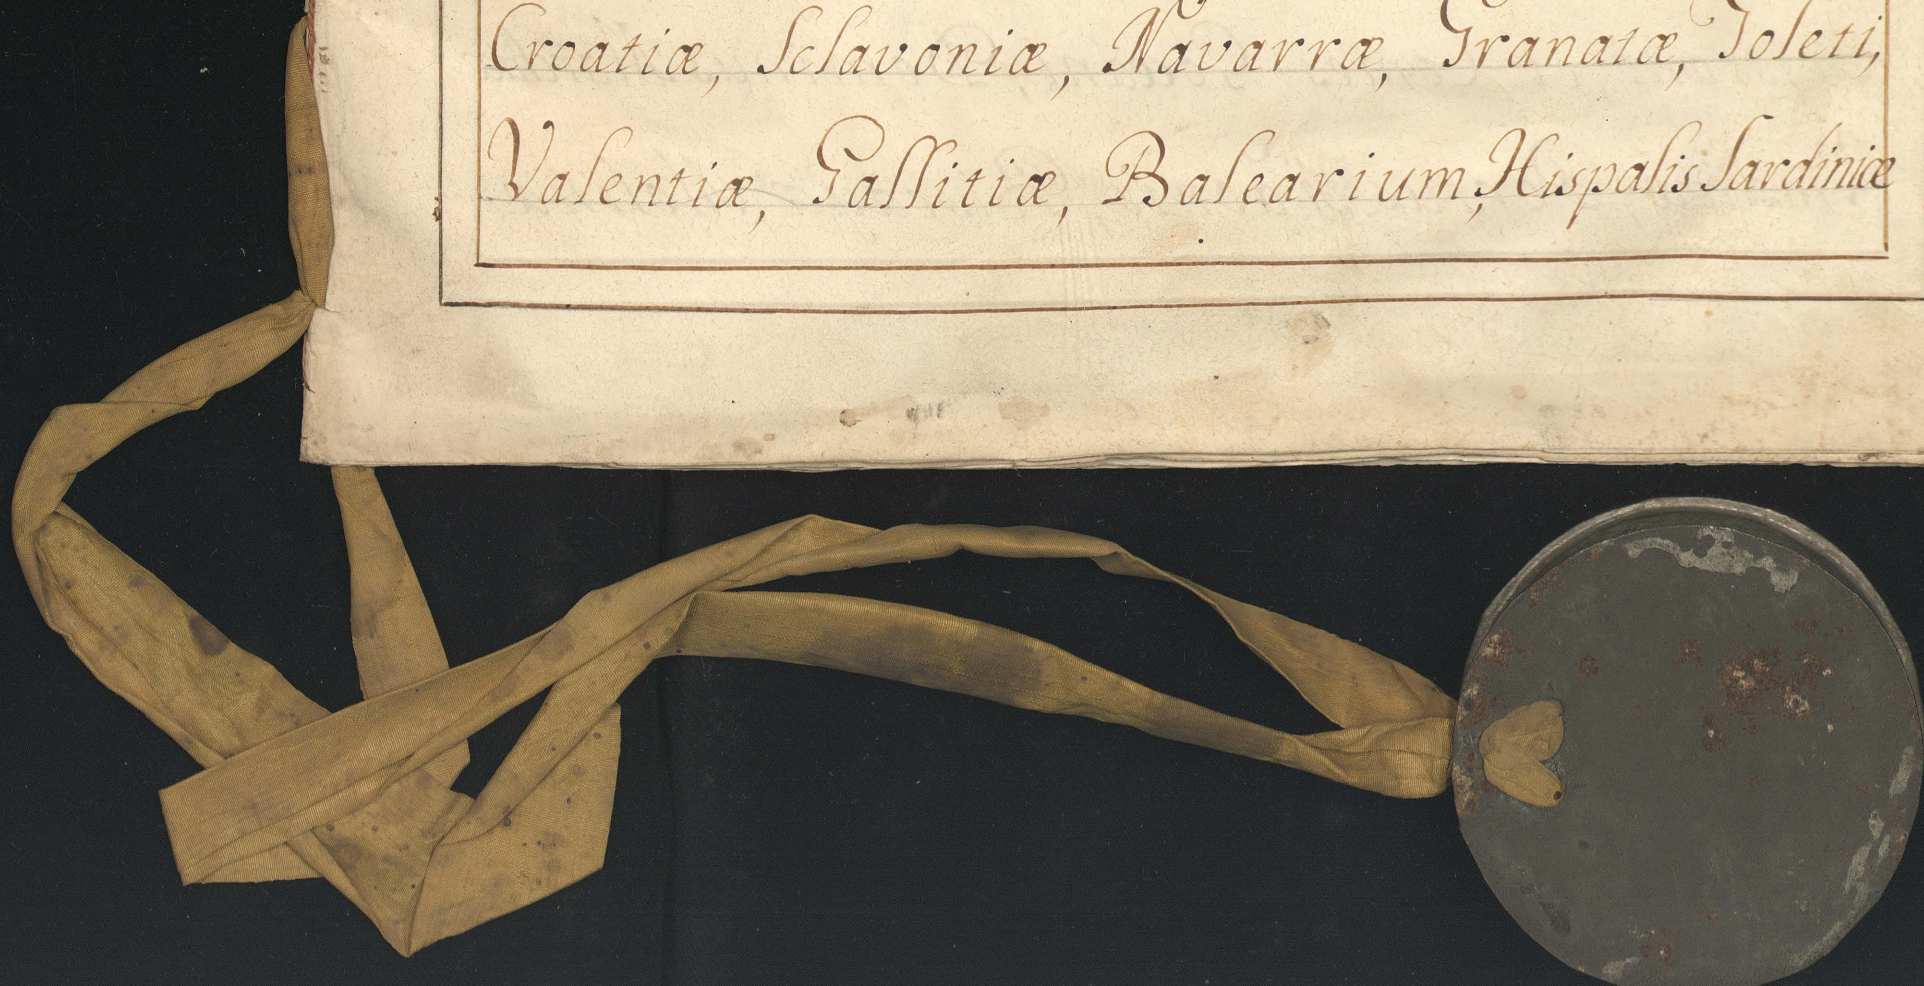 Croatiæ, Sclavoniæ, Navarræ, Granatæ, Toleti,
Valentiæ, Gallitiæ, Balearium, Hispalis Sardiniæ